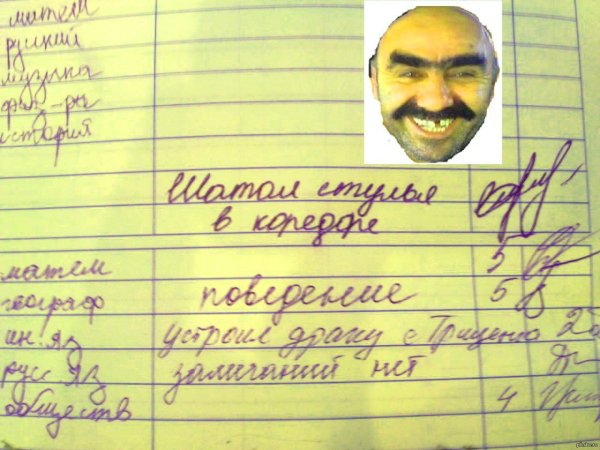 матем
руский
музыка
физ-ра
история
Шатал стулья
в коредоре
матем 5
географ поведение 5
ин.яз устроил драку с Гриценко 2
рус яз замичаний нет
обществ 4